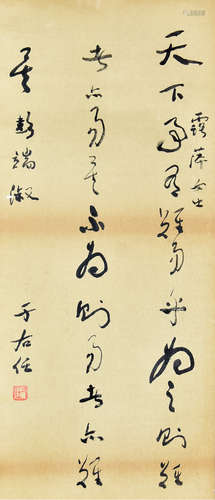 萍女士
天下事有難易乎為之則難
者亦易矣不為則易者亦難
矣 彭端淑
于右任